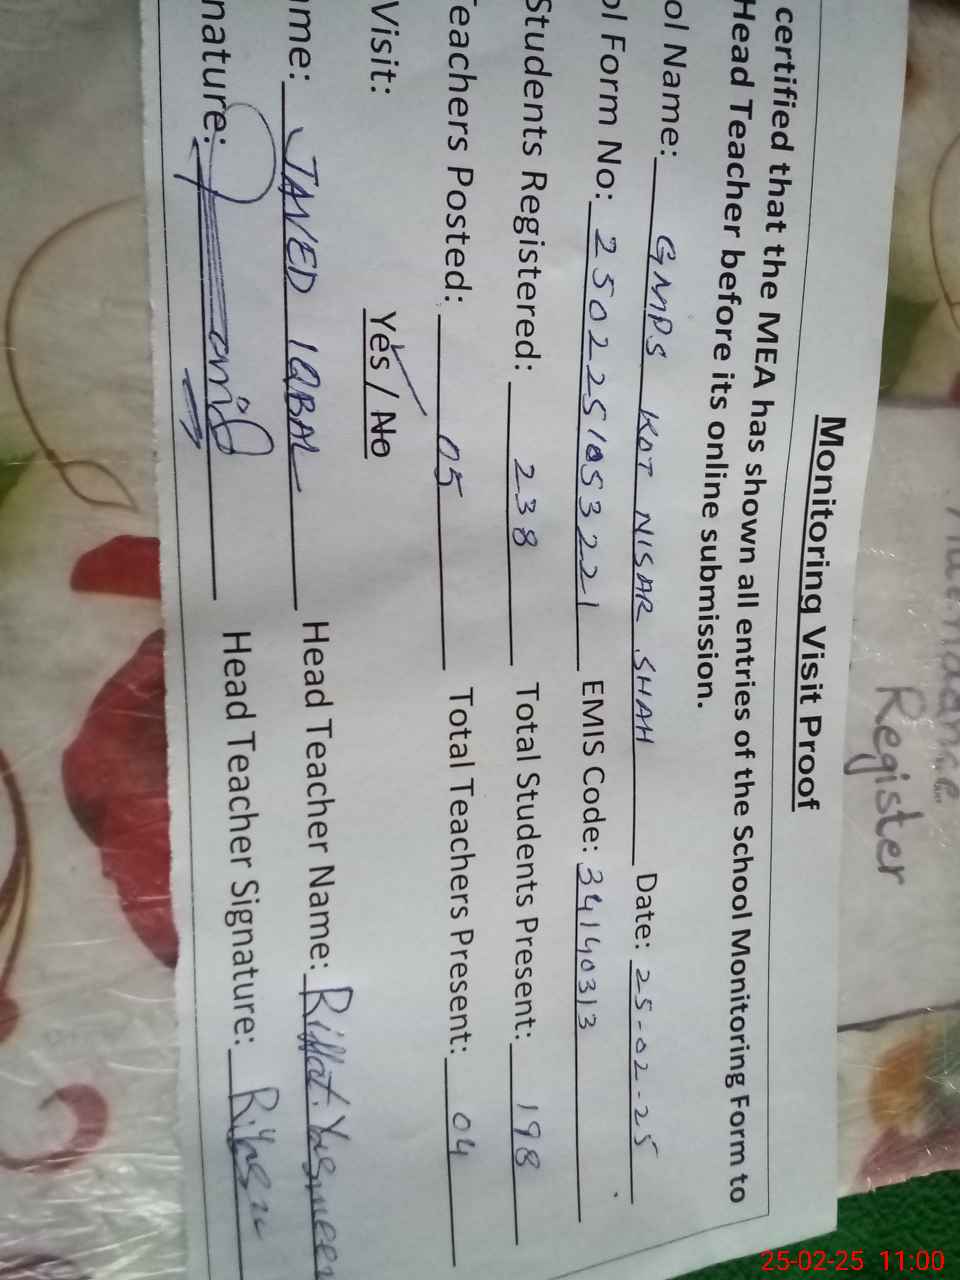 Monitoring Visit Proof
certified that the MEA has shown all entries of the School Monitoring Form to
Head Teacher before its online submission.
ol Name: GMPS KOT NISAR SHAH Date: 25-02-25
ol Form No: 2502251053221 EMIS Code: 34140313
Students Registered: 238 Total Students Present: 198
eachers Posted: 05 Total Teachers Present: 04
Visit: Yes / No
ame: JAVED IQBAL Head Teacher Name: Riffat Yasmeen
nature: Head Teacher Signature:
Attendance
Register
25-02-25 11:00